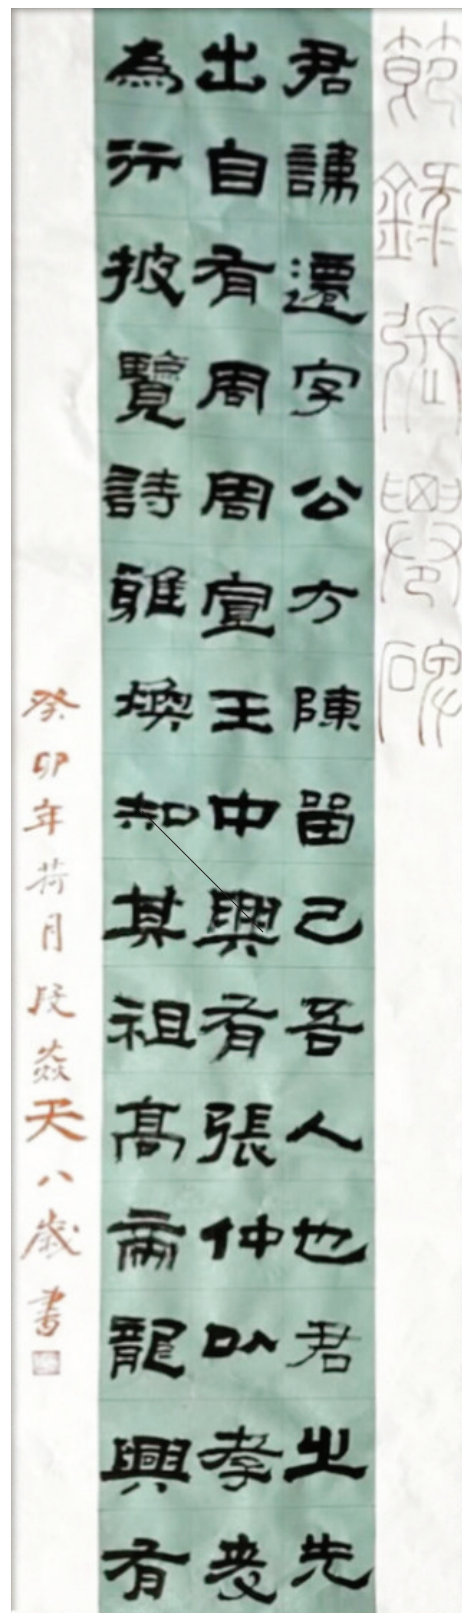 節錄張遷碑
君諱遷字公方陳留己吾人也君之先
出自有周周宣王中興有張仲以孝友
為行披覽詩雅煥知其祖高帝龍興有
癸卯年荷月段焱天八歲書